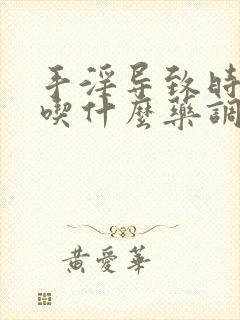 手淫导致時
喫什麼藥調
黃愛華